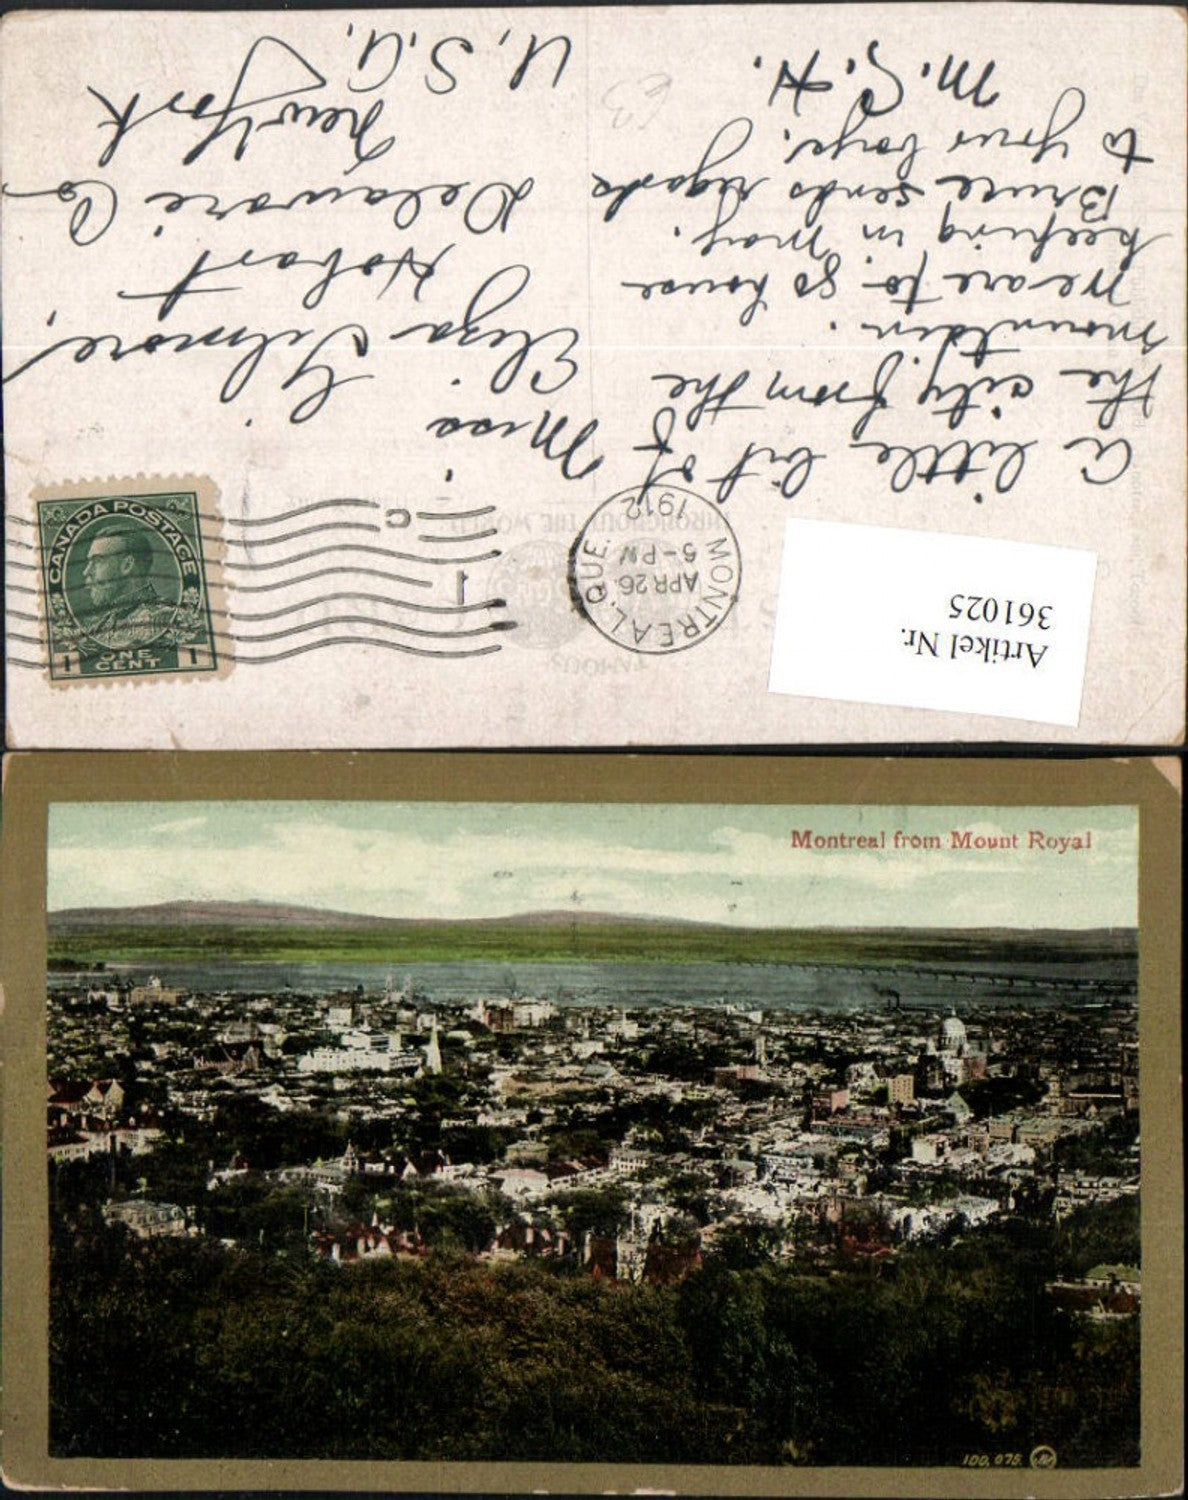 A little bit of
the city from the
mountain.
We are to go house
keeping in May.
Bruce sends regards
to your boys.
M. G. H.
Miss
Eliza Gilmore,
Hobart
Delaware Co
New York
U.S.A.
MONTREAL. QUE.
APR 26
5-PM
1912
C
1
CANADA POSTAGE
1 ONE CENT 1
THROUGHOUT THE WORLD
FAMOUS
Artikel Nr.
361025
Montreal from Mount Royal
100,075